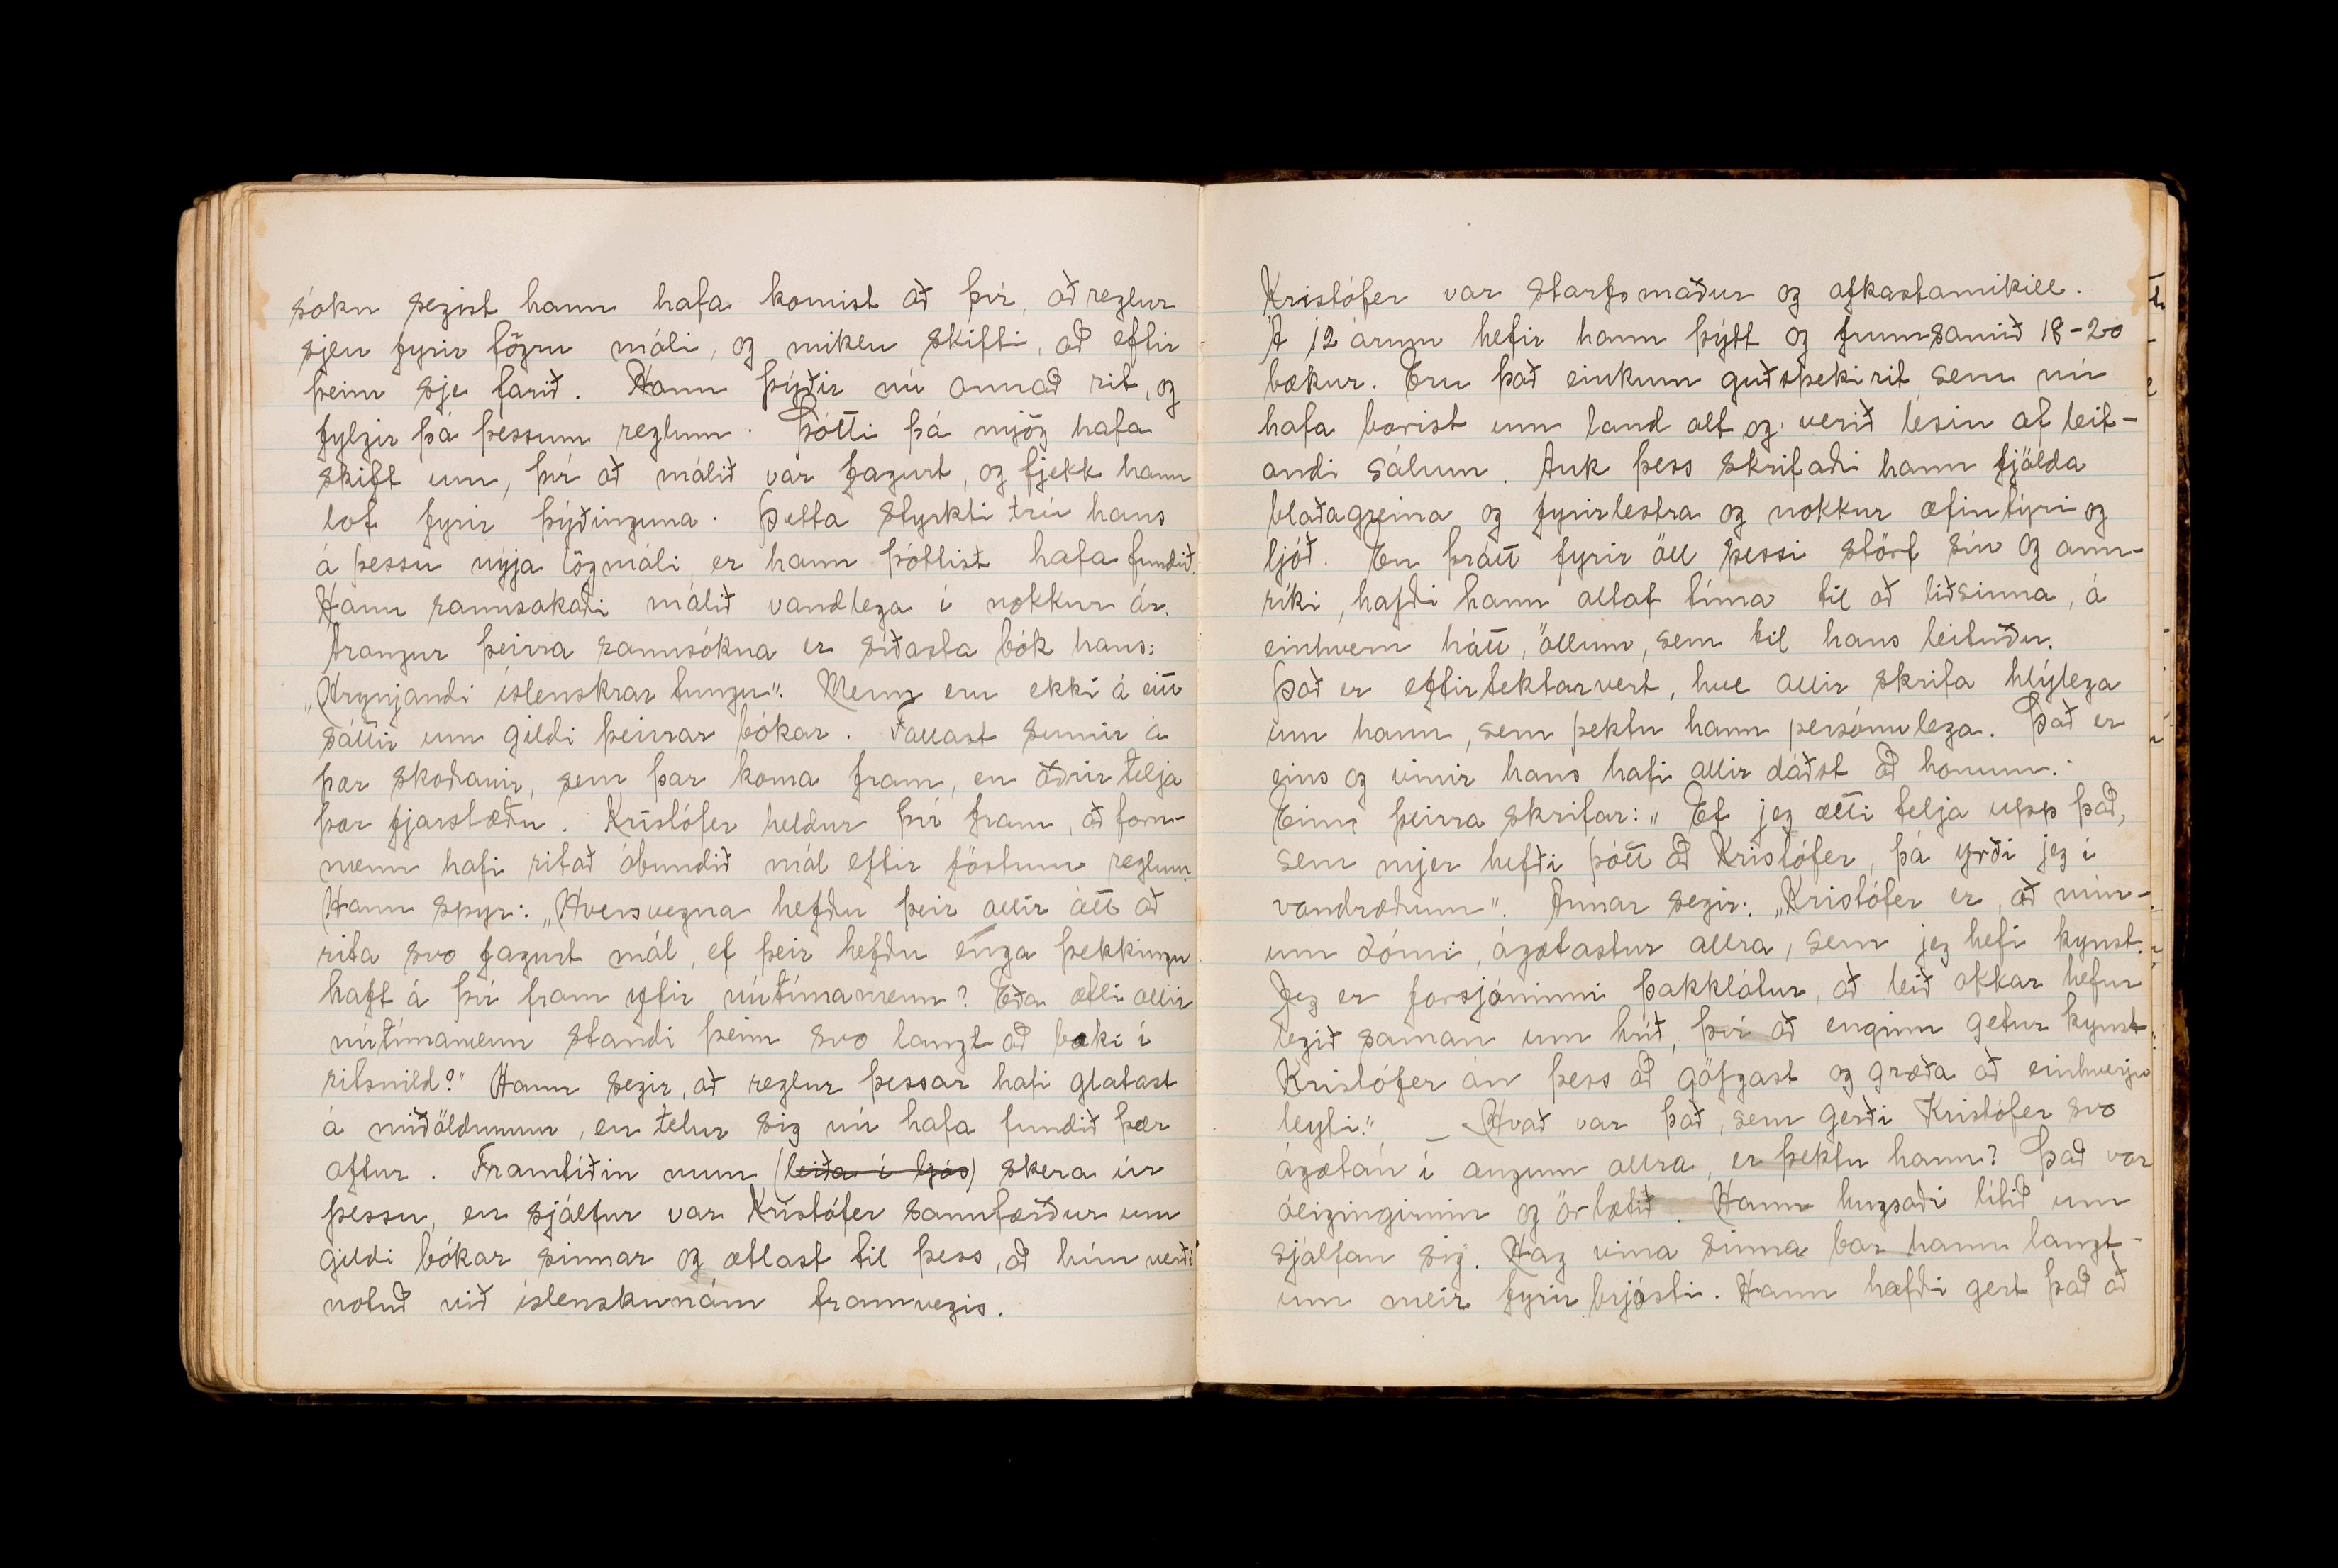 sókn segist hann hafa komist að því, að reglur
sjeu fyrir fögru máli, og miklu skifti, að eftir
þeim sje farið. Hann þýðir nú annað rit, og
fylgir þá þessum reglum. Þótti þá mjög hafa
skift um, því að málið var fagurt, og fjekk hann
lof fyrir þýðinguna. Þetta styrkti trú hans
á þessu nýja lögmáli, er hann þóttist hafa fundið.
Hann rannsakaði málið vandlega í nokkur ár.
Árangur þeirra rannsókna er síðasta bók hans:
„Hrynjandi íslenskrar tungu“. Menn eru ekki á eitt
sáttir um gildi þeirrar bókar. Fallast sumir á
þær skoðanir, sem þar koma fram, en aðrir telja
þær fjarstæðu. Kristófer heldur því fram, að forn-
menn hafi ritað óbundið mál eftir föstum reglum.
Hann spyr: „Hversvegna hefðu þeir allir átt að
rita svo fagurt mál, ef þeir hefðu enga þekkingu
haft á því fram yfir nútímamenn? Eða ætli allir
nútímamenn standi þeim svo langt að baki í
ritsnild?“ Hann segir, að reglur þessar hafi glatast
á miðöldunum, en telur sig nú hafa fundið þær
aftur. Framtíðin mun (leiða í ljós) skera úr
þessu, en sjálfur var Kristófer sannfærður um
gildi bókar sinnar og ætlast til þess, að hún verði
notuð við íslenskunám framvegis.
Kristófer var starfsmaður og afkastamikill.
Á 12 árum hefir hann þýtt og frumsamið 18-20
bækur. Eru það einkum guðspekirit, sem nú
hafa borist um land alt og verið lesin af leit-
andi sálum. Auk þess skrifaði hann fjölda
blaðagreina og fyrirlestra og nokkur æfintýri og
ljóð. En þrátt fyrir öll þessi störf sín og ann-
ríki, hafði hann altaf tíma til að liðsinna, á
einhvern hátt, öllum, sem til hans leituðu.
Það er eftirtektarvert, hve allir skrifa hlýlega
um hann, sem þektu hann persónulega. Það er
eins og vinir hans hafi allir dáðst að honum.
Einn þeirra skrifar: „Ef jeg ætti telja upp það,
sem mjer hefði þótt að Kristófer, þá yrði jeg í
vandræðum“. Annar segir: „Kristófer er, að mín-
um dómi, ágætastur allra, sem jeg hefi kynst.
Jeg er forsjóninni þakklátur, að leið okkar hefur
legið saman um hríð, því að enginn getur kynst
Kristófer án þess að göfgast og græða að einhverju
leyti.“ – Hvað var það, sem gerði Kristófer svo
ágætan í augum allra, er þektu hann? Það var
óeigingirnin og örlætið. Hann hugsaði lítið um
sjálfan sig. Hag vina sinna bar hann langt-
um meir fyrir brjósti. Hann hafði gert það að